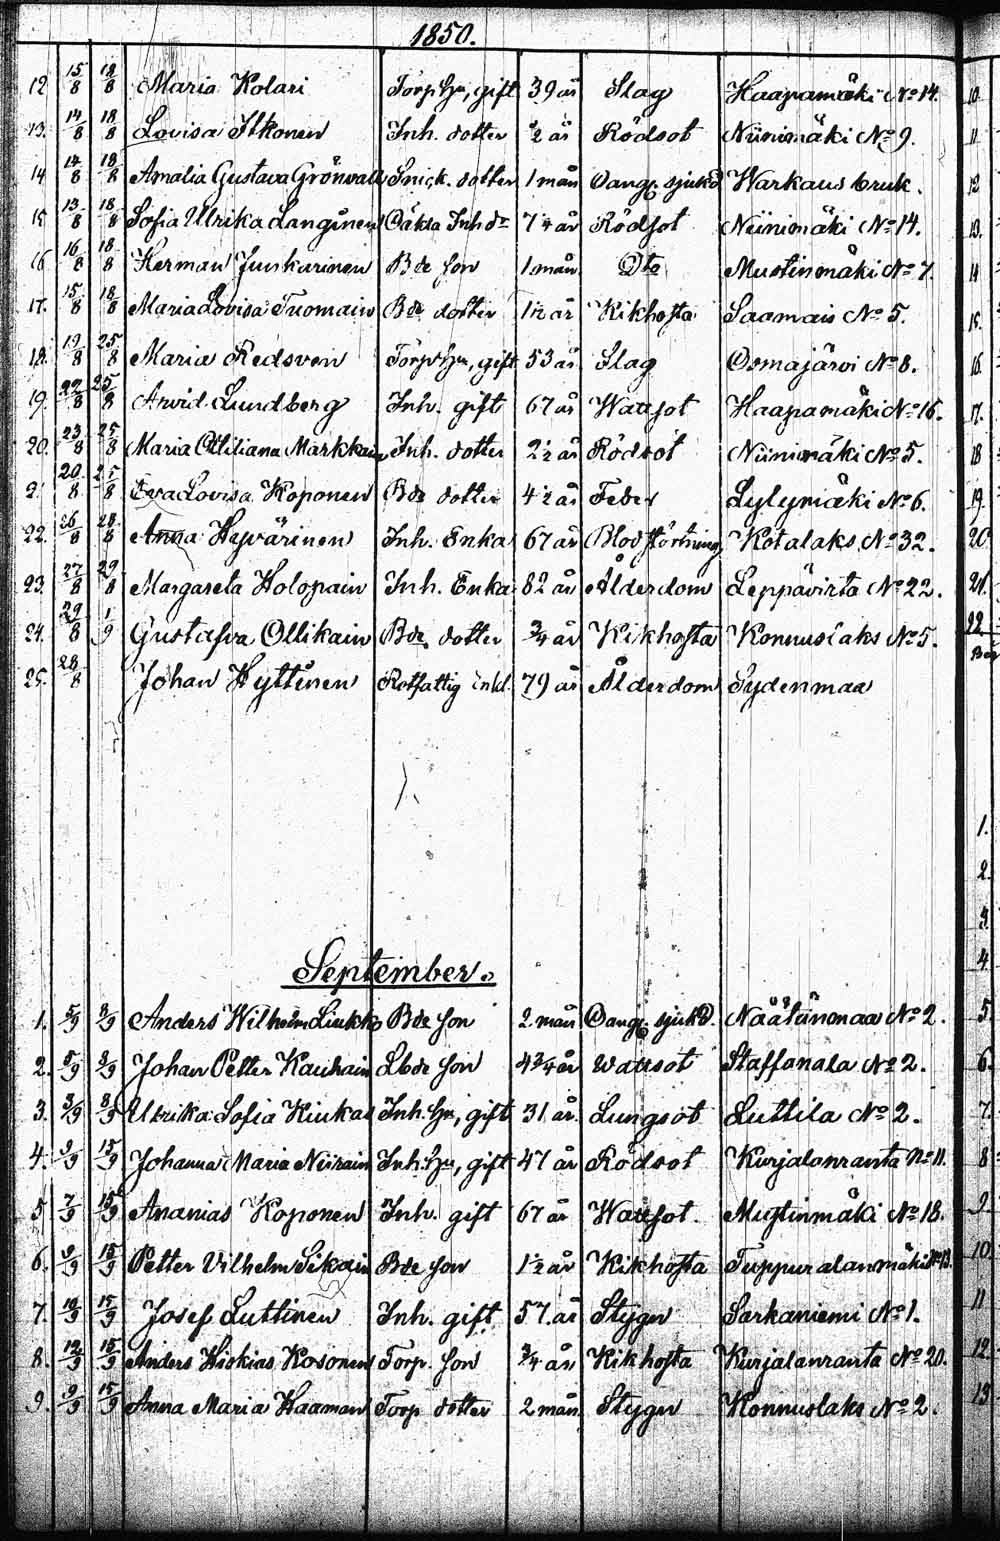 1850.
12 15/8 18/8 Maria Kolari Torp hu, gift 39 år Slag Haapamäki No 14.
13. 14/8 18/8 Lovisa Itkonen Inh. dotter ½ år Rödsot Niinimäki No 9.
14 14/8 18/8 Amalia Gustava Grönvall Snick. dotter 1 mån Oang. sjukd Warkaus bruk.
15 13/8 18/8 Sofia Ulrika Langinen Oäkta Inh dr 7¼ år Rödsot Niinimäki No 14.
16 16/8 18/8 Herman Junkarinen Bde son 1 mån Dto Mustinmäki No 7.
17. 15/8 18/8 Maria Lovisa Tuomain Bde dotter 1½ år Kikhosta Saamais No 5.
18. 19/8 25/8 Maria Redsven Torp hu, gift 53 år Slag Osmajärvi No 8.
19. 22/8 25/8 Arvid Lundberg Inh. gift 67 år Wattsot Haapamäki No 16.
20. 23/8 25/8 Maria Markkain Inh. dotter 2½ år Rödsot Niinimäki No 5.
21 20/8 25/8 Eva Lovisa Koponen Bde dotter 4½ år Feber Lylymäki No 6.
22. 26/8 28/8 Anna Hyvärinen Inh. Enka 67 år Blodstörtning Kotalaks No 32.
23. 27/8 29/8 Margareta Holopain Inh. Enka 82 år Ålderdom Leppävirta No 22.
24. 29/8 1/9 Gustafva Ollikain Bde dotter ¾ år Kikhosta Konnuslaks No 5.
25. 28/8 Johan Hyttinen Rotfattig Enkl. 79 år Ålderdom Sydenmaa
September.
1. 5/9 8/9 Anders Wilhelm Liukko Bde son 2 mån Oang. sjukd. Näätänmaa No 2.
2. 5/9 8/9 Johan Petter Kauhain Lbde son 4¾ år Wattsot Staffanala No 2.
3. 3/9 8/9 Ulrika Sofia Kiukas Inh. hu, gift 31 år Lungsot Luttila No 2.
4. 9/9 15/9 Johanna Maria Niirain Inh. hu, gift 47 år Rödsot Kurjalanranta No 11.
5 7/9 15/9 Ananias Koponen Inh. gift 67 år Wattsot Mustinmäki No 18.
6. 9/9 15/9 Petter Vilhelm Sikain Bde son 1½ år Kikhosta Tuppuralanmäki No 13.
7. 10/9 15/9 Josef Luttinen Inh. gift 57. år Stygn Sarkaniemi No 1.
8. 12/9 15/9 Anders Hiskias Kosonen Torp. son ¾ år Kikhosta Kurjalanranta No 20.
9. 9/9 15/9 Anna Maria Haaman Torp dotter 2 mån Stygn Konnuslaks No 2.
10.
11
12
13.
14
15.
16.
17.
18
19.
20
21.
22
1.
2.
3.
4
5
6.
7.
8
9
10.
11
12.
13